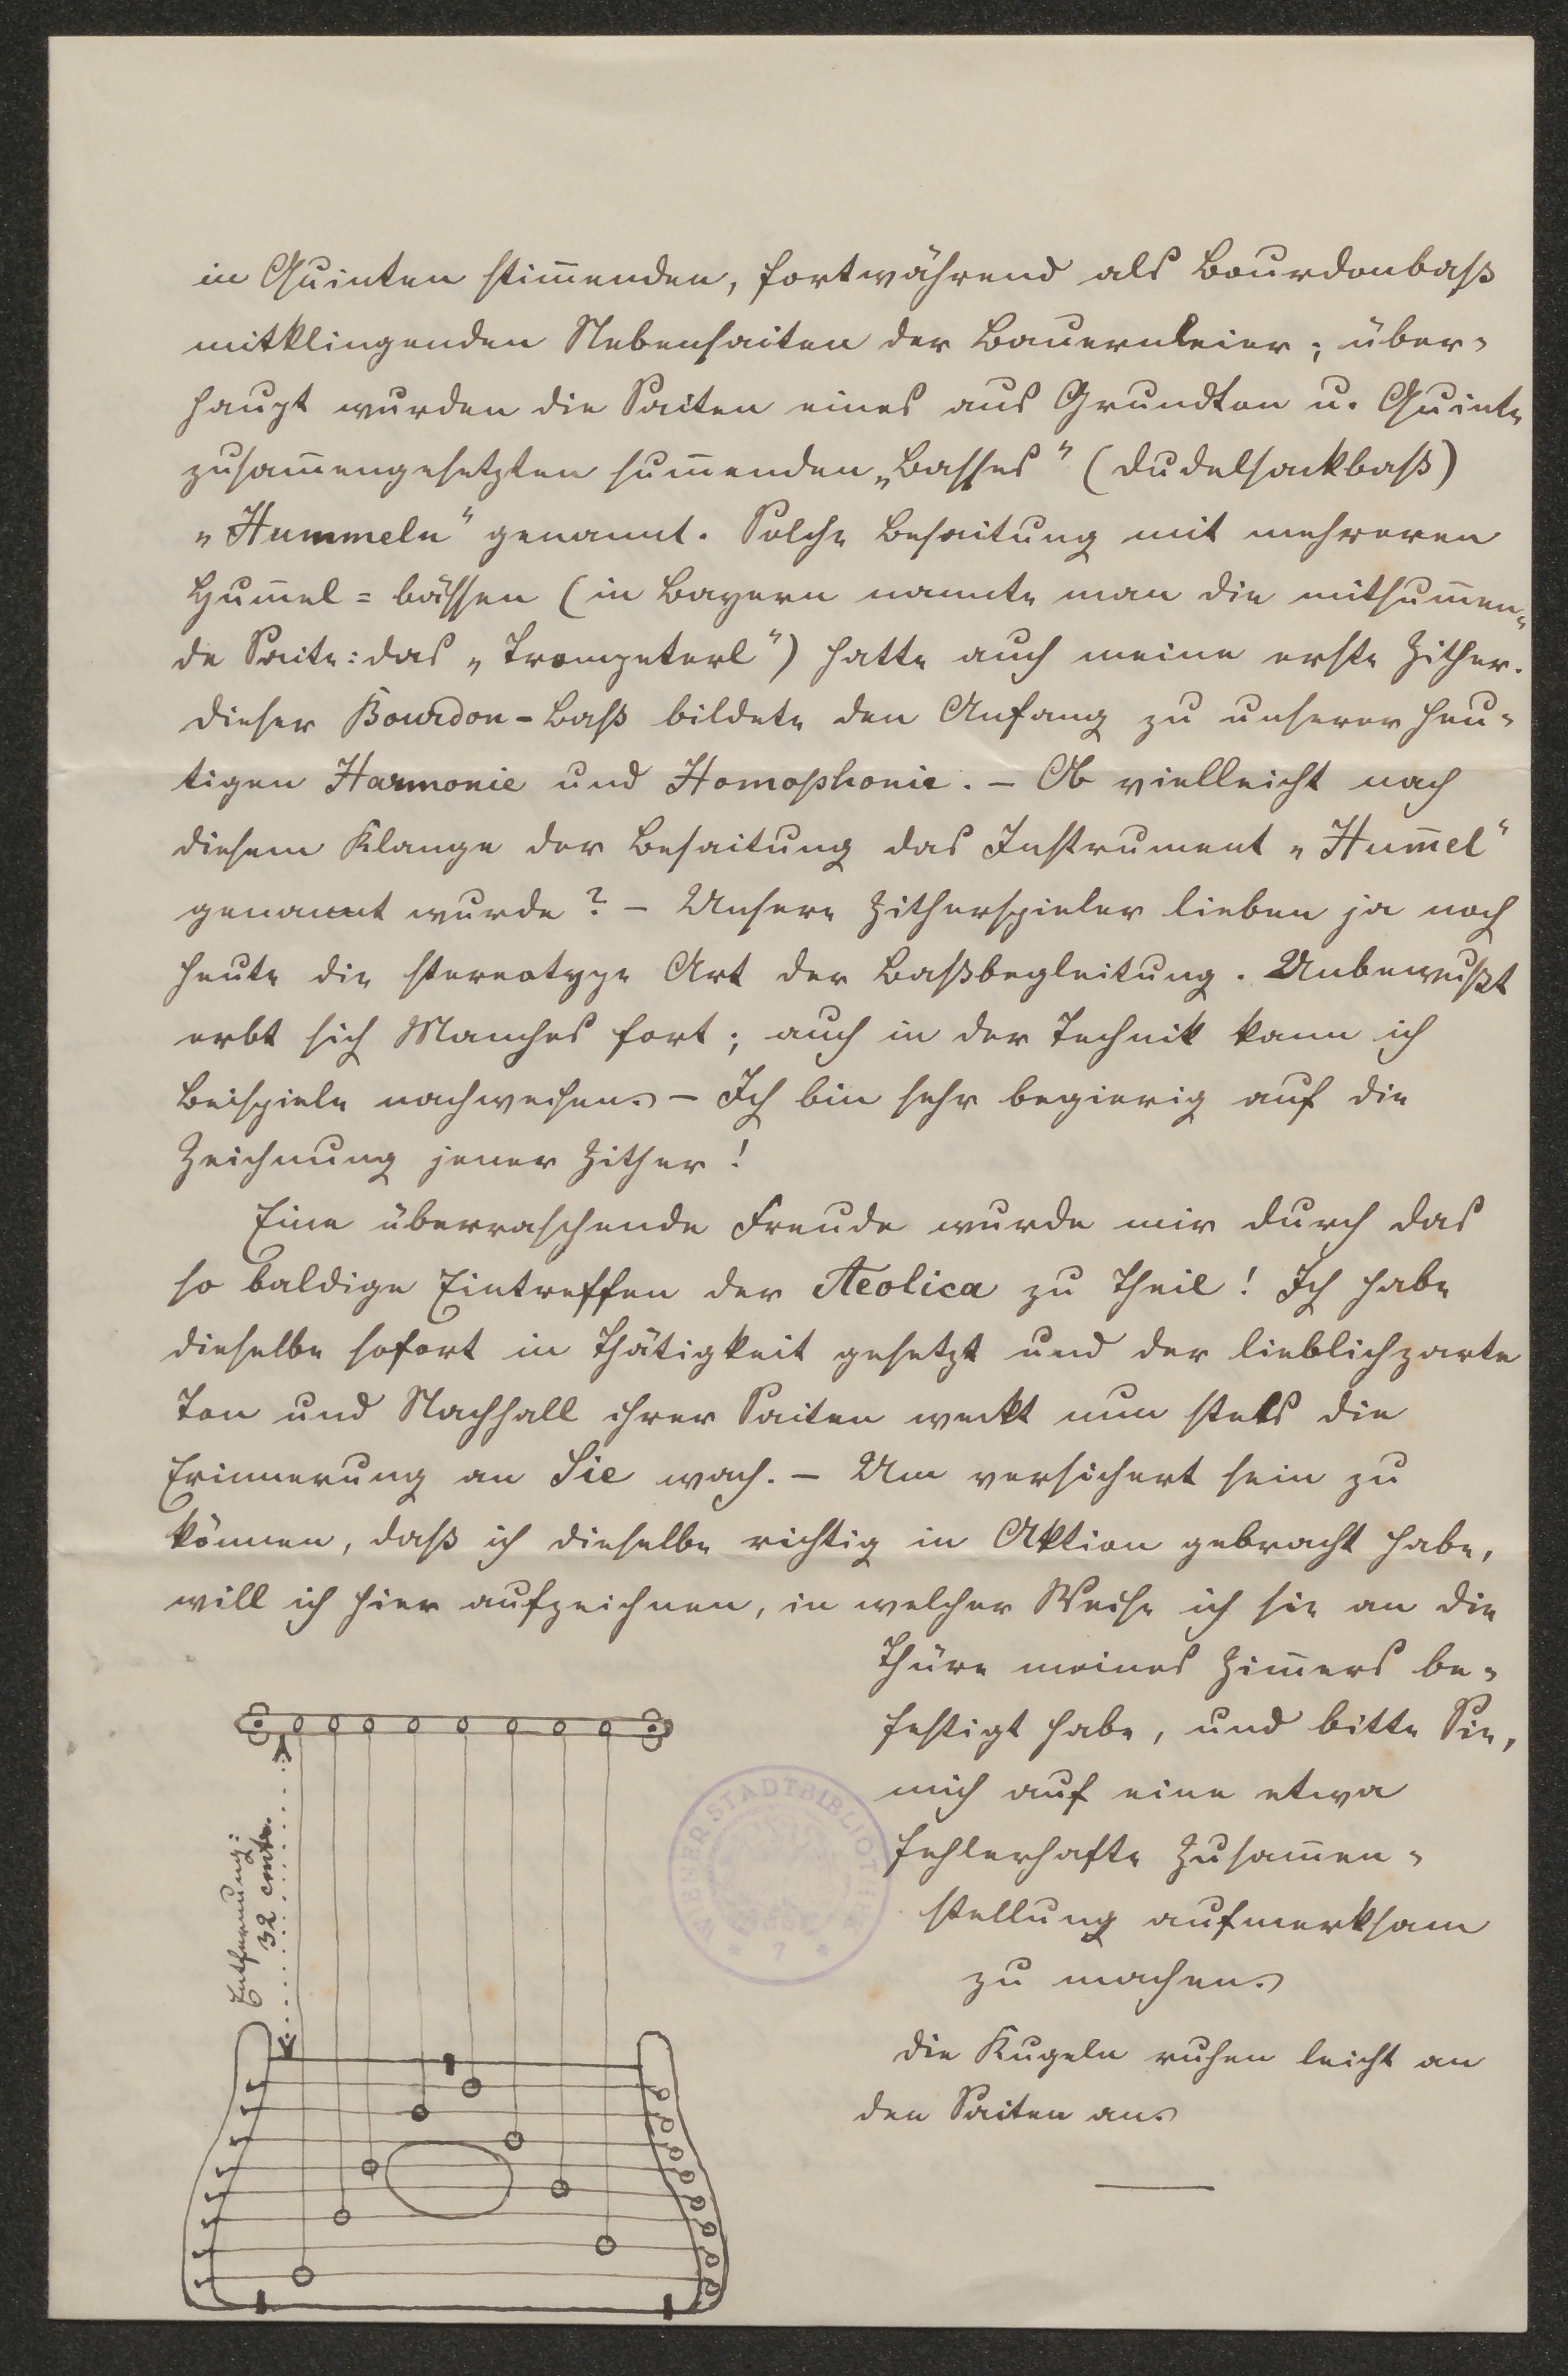 in Quinten stim̅enden, fortwährend als Bourdonbaß
mitklingenden Nebensaiten der Bauernleier; über-
haupt wurden die Saiten eines aus Grundton u. Quinte
zusam̅engesetzten sum̅enden „Basses" (Dudelsackbaß)
„Hummeln" genannt. Solche Besaitung mit mehreren
Hum̅el=bässen (in Bayern nannte man die mitsum̅en-
de Saite: das „Trompeterl") hatte auch meine erste Zither.
Dieser Bourdon-Baß bildete den Anfang zu unserer heu-
tigen Harmonie und Homophonie. – Ob vielleicht nach
diesem Klange der Besaitung das Instrument „Hum̅el"
genannt wurde? – Unsere Zitherspieler lieben ja noch
heute die stereotype Art der Baßbegleitung. Unbewußt
erbt sich Manches fort; auch in der Technik kann ich
Beispiele nachweisen. – Ich bin sehr begierig auf die
Zeichnung jener Zither!
Eine überraschende Freude wurde mir durch das
so baldige Eintreffen der Aeolica zu Theil! Ich habe
dieselbe sofort in Thätigkeit gesetzt und der lieblichzarte
Ton und Nachhall ihrer Saiten weckt nun stets die
Erinnerung an Sie wach. – Um versichert sein zu
können, daß ich dieselbe richtig in Aktion gebracht habe,
will ich hier aufzeichnen, in welcher Weise ich sie an die
Thüre meines Zim̅ers be-
festigt habe, und bitte Sie,
mich auf eine etwa
fehlerhafte Zusam̅en-
stellung aufmerksam
zu machen.
Die Kugeln ruhen leicht an
den Saiten an.
Entfernung:
32 cmtr.
WIENER STADTBIBLIOTHEK
* 7 *